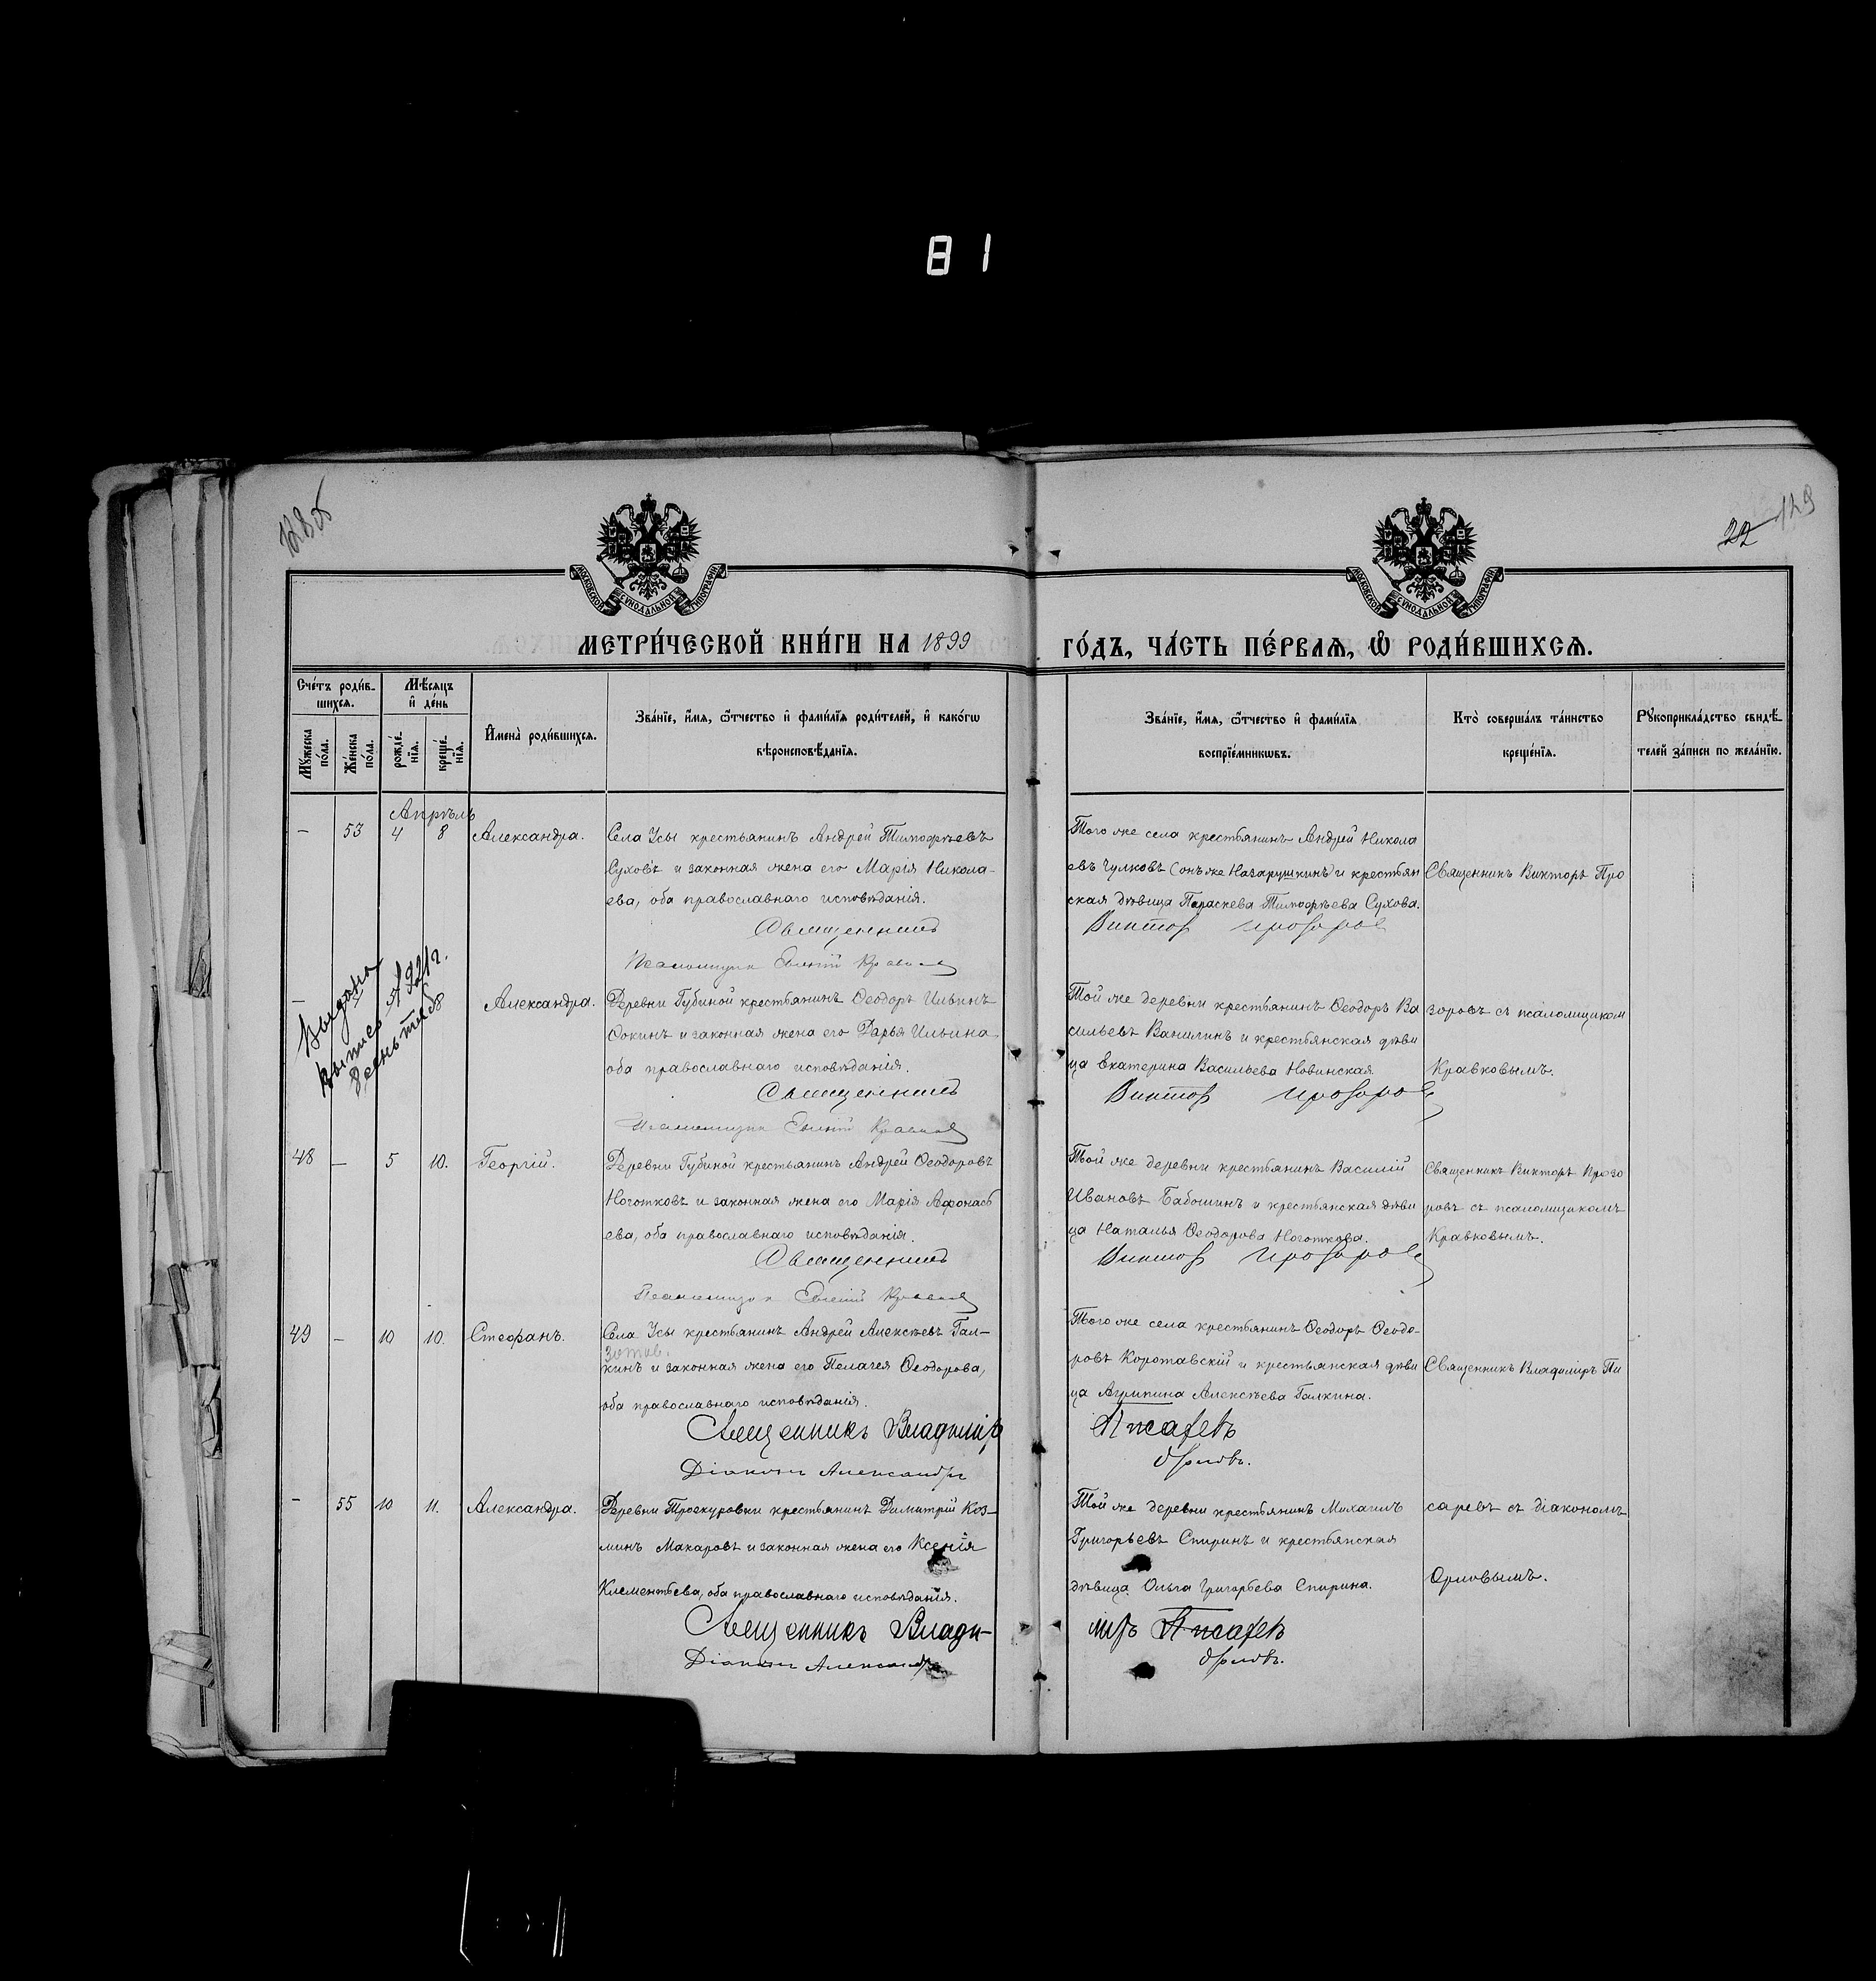 81
128об
22 129
МОСКОВСКОЙ СѴНОДАЛЬНОЙ ТИПОГРАФІИ
МОСКОВСКОЙ СѴНОДАЛЬНОЙ ТИПОГРАФІИ
МЕТРИ́ЧЕСКОЙ КНИ́ГИ НА 1899 ГО́ДЪ, ЧА́СТЬ ПЕ́РВАѦ, Ѡ҆ РОДИ́ВШИХСѦ.
Сче́тъ роди́в-
шихся.
Мꙋ́жеска по́ла.
Же́нска по́ла.
Мѣ́сяцъ
и҆ де́нь
рожде́-
нїя.
креще́-
нїя.
И҆мена̀ роди́вшихся.
Зва́нїе, и҆́мя, ѻ҆́тчество и҆ фами́лїя роди́телей, и҆ како́гѡ
вѣроисповѣ́данїя.
Зва́нїе, и҆́мя, ѻ҆́тчество и҆ фами́лїя
воспрїе́мникѡвъ.
Кто̀ соверша́лъ та́инство
креще́нїя.
Рꙋкоприкла́дство свидѣ́-
телей за́писи по жела́нїю.
Апрѣль
— 53 4 8 Александра.
Села Усы крестьянинъ Андрей Тимофѣевъ
Суховъ и законная жена его Марія Никола-
ева, оба православнаго исповѣданія.
Священникъ
Псаломщикъ
Того же села крестьянинъ Андрей Никола
евъ Чулковъ (онъ же Назарушкинъ) и крестьян
ская дѣвица Параскева Тимофѣева Сухова.
Викторъ Прозоровъ
Священникъ Викторъ Про
Выдана
выпись 5/ 1921г.
— 8 Александра.
Деревни Губиной крестьянинъ Ѳеодоръ Ильинъ
Ѳокинъ и законная жена его Дарья Ильина
оба православнаго исповѣданія.
Священникъ
Псаломщикъ
Той же деревни крестьянинъ Ѳеодоръ Ва
сильевъ Ванилинъ и крестьянская дѣви
ца Екатерина Васильева Новинская
Викторъ Прозоровъ
зоровъ съ псаломщиком
Кравковымъ.
48 — 5 10. Георгій.
Деревни Губиной крестьянинъ Андрей Ѳеодоровъ
Ноготковъ и законная жена его Марія Аѳонась
ева, оба православнаго исповѣданія.
Священникъ
Псаломщикъ
Той же деревни крестьянинъ Василій
Ивановъ Бабошинъ и крестьянская дѣви
ца Наталья Ѳеодорова Ноготкова.
Викторъ Прозоровъ
Священникъ Викторъ Прозо
ровъ съ псаломщикомъ
Кравковымъ.
49 — 10 10. Стефанъ.
Села Усы крестьянинъ Андрей Алексѣевъ Гал-
Зотов.
кинъ и законная жена его Пелагея Ѳеодорова,
оба православнаго исповѣданія.
Священникъ Владимір
Діаконъ Александръ
Того же села крестьянинъ Ѳеодоръ Ѳеодо-
ровъ Коротавскій и крестьянская дѣви
ца Агрипина Алексѣева Галкина.
Писаревъ
Орловъ.
Священникъ Владиміръ Пи
— 55 10 11. Александра.
Деревни Троекуровки крестьянинъ Димитрій Коз-
минъ Макаровъ и законная жена его Ксенія
Клементьева, оба православнаго исповѣданія.
Священникъ Влади-
Діаконъ Александръ
Той же деревни крестьянинъ Михаилъ
Григорьевъ Спиринъ и крестьянская
дѣвица Ольга Григорьева Спирина.
міръ Писаревъ
Орловъ.
саревъ съ діакономъ
Орловымъ.